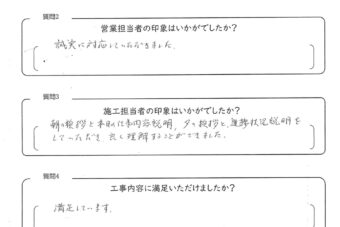 質問2
営業担当者の印象はいかがでしたか?
誠実に対応していただきました。
質問3
施工担当者の印象はいかがでしたか?
朝の挨拶と本日の作業内容説明、夕の挨拶と、進捗状況説明を
していただき、良く理解することができました。
質問4
工事内容に満足いただけましたか?
満足しています。